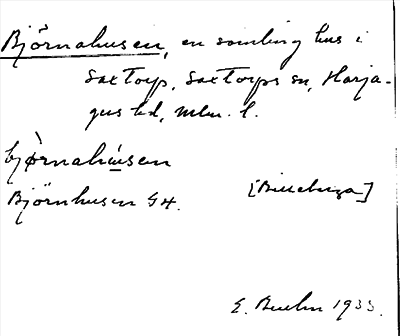 Björnahusen, en samling hus i
Saxtorp, Saxtorps sn, Harja-
gers hd, Mlm. l.
bjø̀rnahú̱sen
Björnhusen GK.
[Billeberga]
E. Buchn 1933.